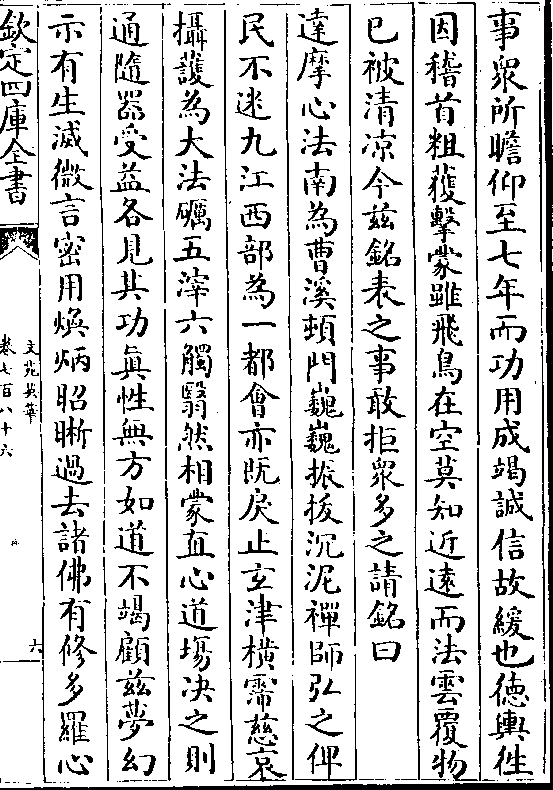 事衆所瞻仰至七年而功用成竭誠信故緩也徳輿徃
因稽首粗獲擊蒙雖飛鳥在空莫知近逺而法雲覆物
已被清凉今兹銘表之事敢拒衆多之請銘曰
達摩心法南為曹溪頓門巍巍振拔沉泥禪師𢎞之俾
民不迷九江西部為一都㑹亦既戾止玄津横霈慈哀
攝䕶為大法礪五滓六觸翳然相蒙直心道塲决之則
通隨器受益各見其功真性無方妙道不竭顧兹夢幻
示有生滅微言密用煥炳昭晣過去諸佛有修多羅心
欽定四庫全書
文苑英華
卷七百八十六
六